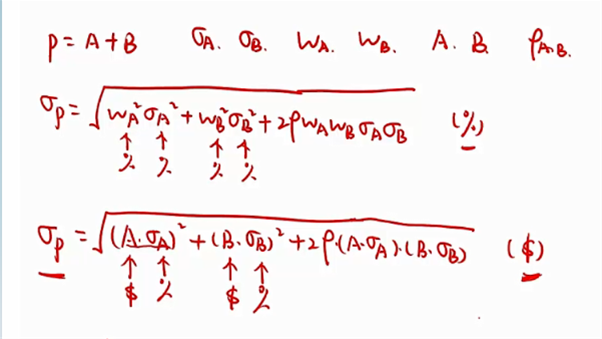 P = A + B σA. σB. WA. WB. A. B. ρA.B.
σp = √(WA²σA² + WB²σB² + 2ρWAWBσAσB) (%)
↑ ↑ ↑ ↑
% % % %
σp = √((A·σA)² + (B·σB)² + 2ρ·(A·σA)·(B·σB)) ($)
↑ ↑ ↑ ↑
$ % $ %